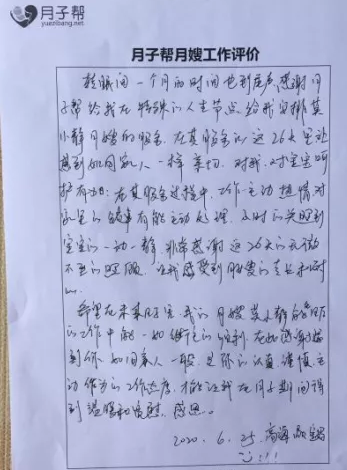 月子帮
yuezibang.net
月子帮月嫂工作评价
转眼间一个月的时间也到尾声,感谢月
子帮给我在特殊的人生节点给我安排莫
小静月嫂的服务,在其服务的这26天里让
感到如同家人一样亲切,对我、对宝宝呵
护有加,在其服务过程中,工作主动热情对
家里的事有能主动处理,及时的关照到
宝宝的一动一静,非常感谢这26天的无微
不至的照顾,让我感受到月嫂的专长和耐
心。
希望在未来日子里,我的月嫂莫小静
的工作中能一如继往的顺利,在此感谢
到你,如同家人一般,是你的认真谨慎主
动作为的工作态度,才能让我在月子期间得
到温暖和宽慰,感恩。
2020.6.25